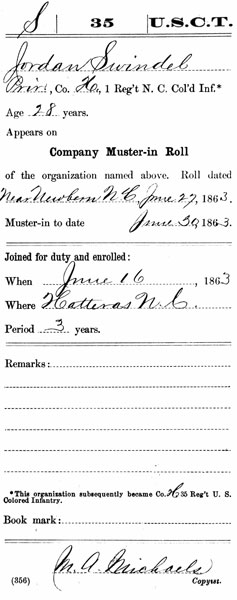 S 35 U.S.C.T.
Jordan Swindel
Priv., Co. H, 1 Reg't N. C. Col'd Inf.*
Age 28 years.
Appears on
Company Muster-in Roll
of the organization named above. Roll dated
Near Newbern N.C. June 27, 1863.
Muster-in to date June 30, 1863.
Joined for duty and enrolled:
When June 16, 1863
Where Hatteras N.C.
Period 3 years.
Remarks:
*This organization subsequently became Co. H 35 Reg't U. S. Colored Infantry.
Book mark:
M. A. Michaels
(356) Copyist.